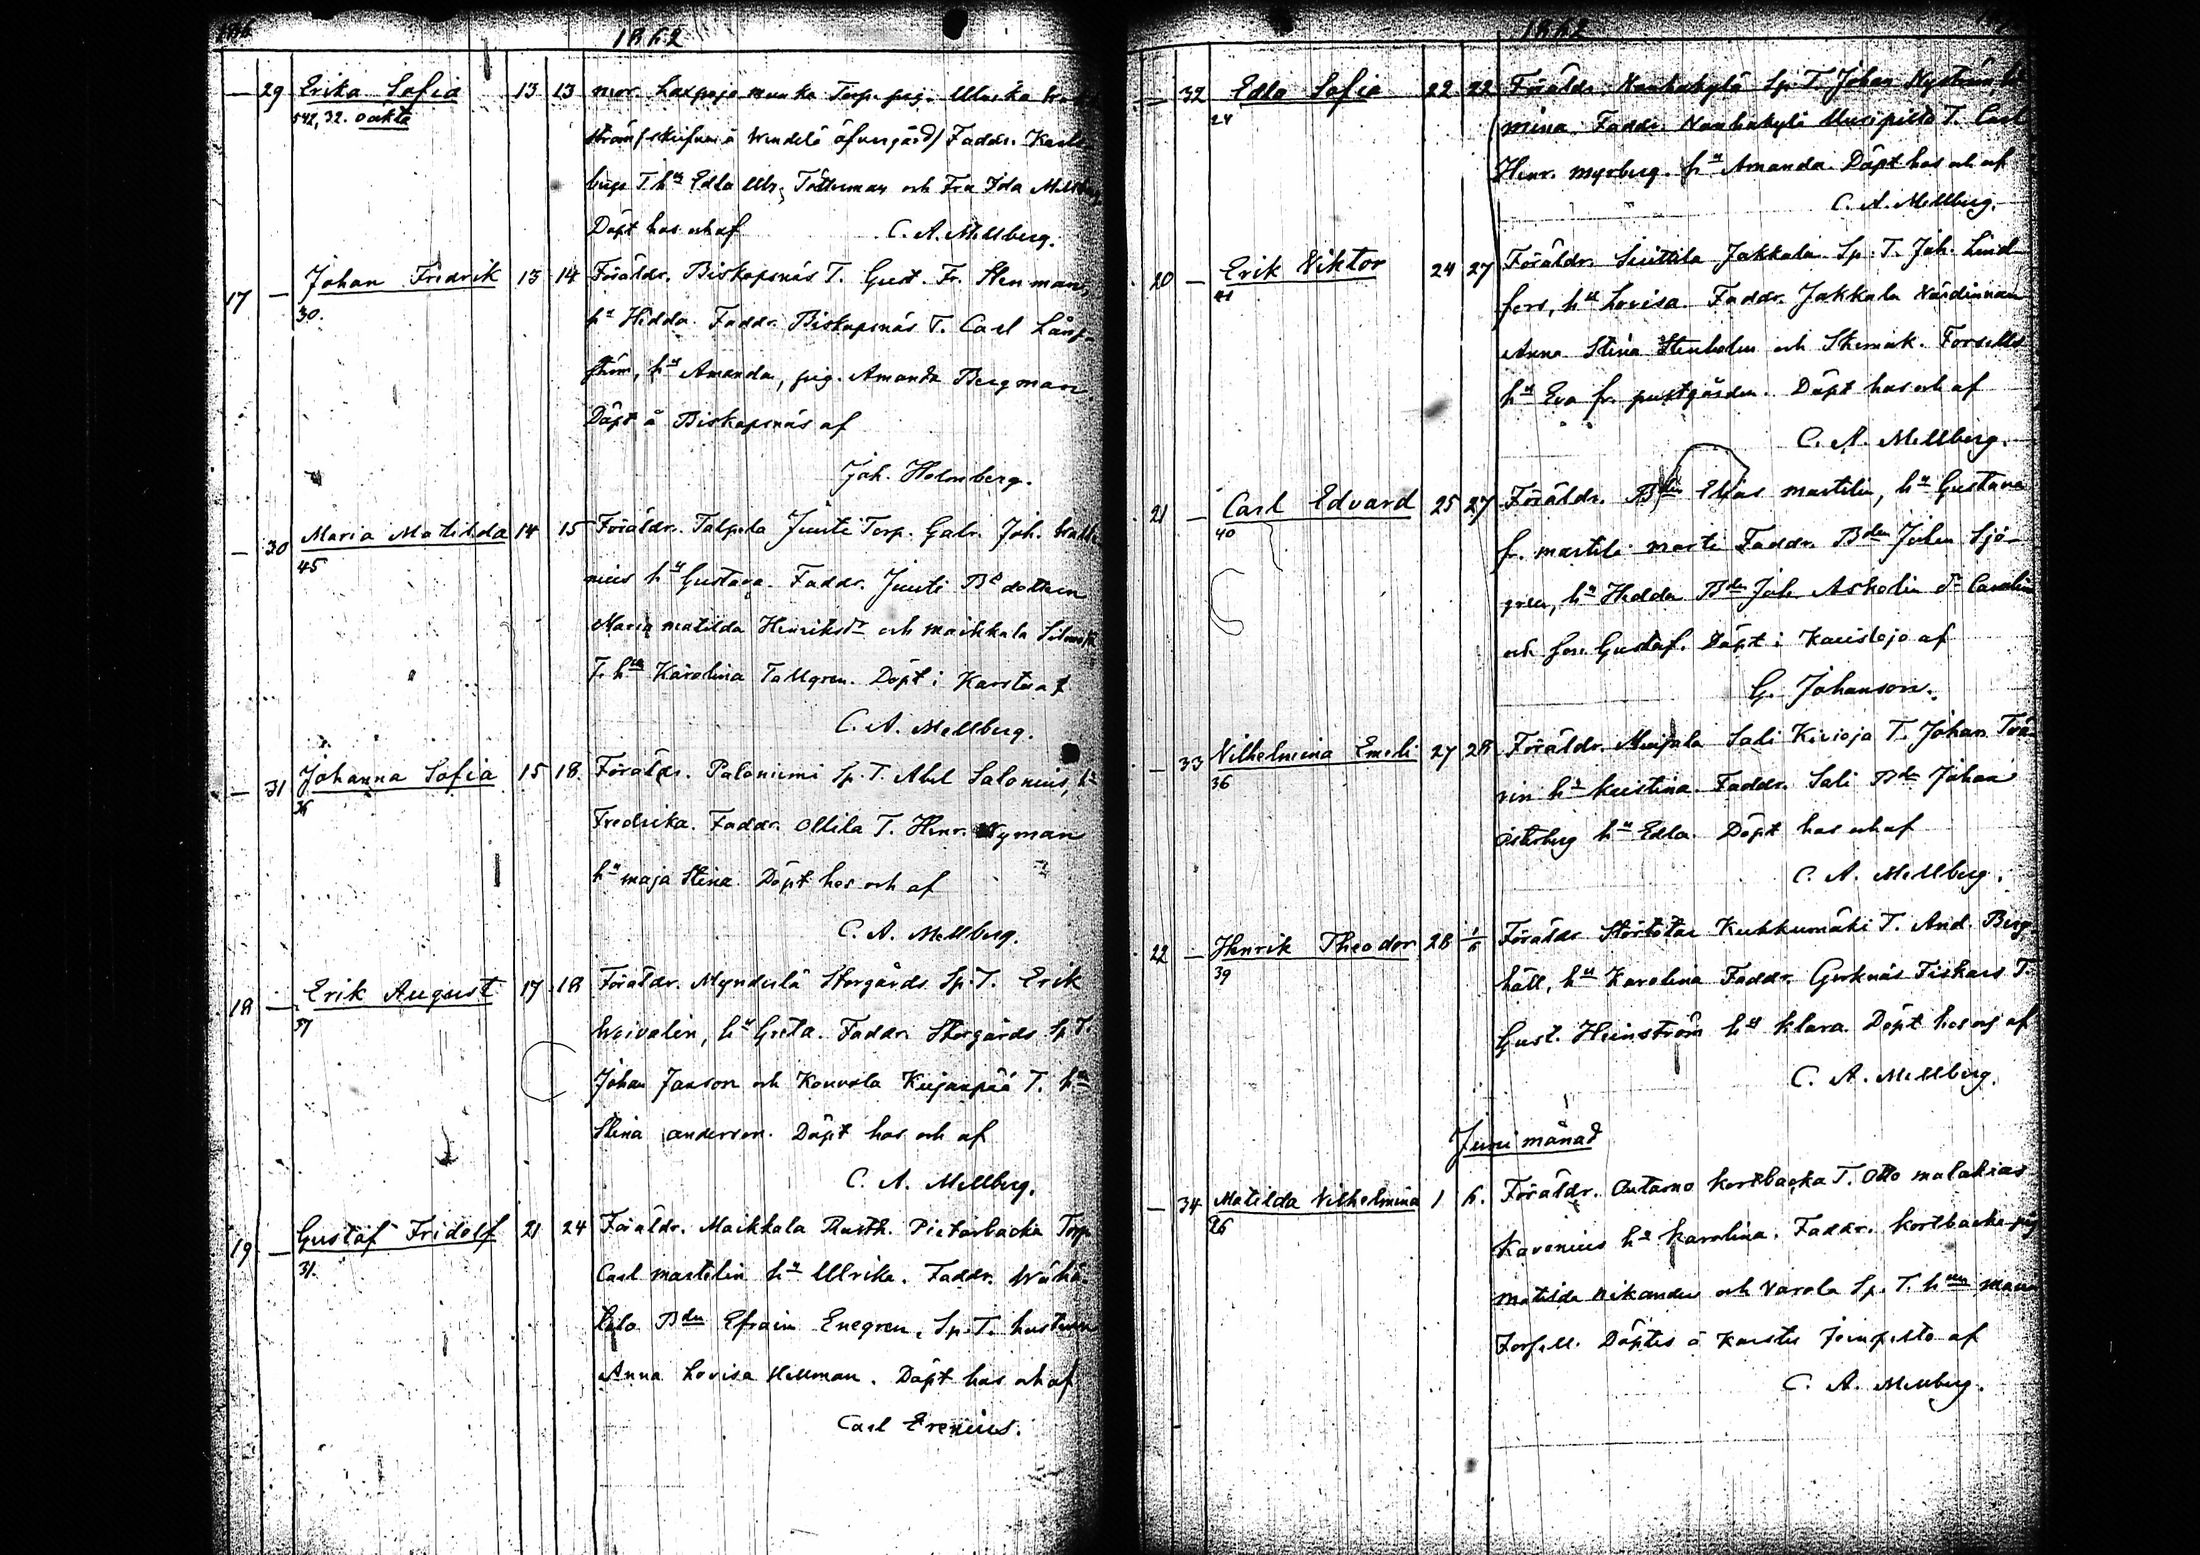 1862
— 29 Erika Sofia 13 13 mor. Laxpojo munka Torp. pig. Ulrika
542, 32. oäkta
ström (skrifven å Wendelä öfvergård) Faddr. Karls-
T. hu Edla Ulr. Tötterman och Fra Ida
Döpt hos och af C. A. Mellberg.
17 — Johan Fredrik 13 14 Föräldr. Biskopsnäs T. Gust. Fr. Stenman,
30.
hu Hedda. Faddr. Biskopsnäs T. Carl Lång-
ström, hu Amanda, pig. Amanda Bergman
Döpt å Biskopsnäs af
Joh. Holmberg.
— 30 Maria Matilda 14 15 Föräldr. Talpela Junti Torp. Gabr. Joh.
45
nius hu Gustava. Faddr. Junti Bd dottren
Maria Matilda Henriksdr och Maikkala
T. hun Karolina Tallgren. Döpt i Karstu af
C. A. Mellberg.
— 31 Johanna Sofia 15 18. Föräldr. Paloniemi Sp. T. Abel Salonius, hu
36
Fredrika. Faddr. Ollila T. Henr. Nyman
hu Maja Stina. Döpt hos och af
C. A. Mellberg.
18 — Erik August 17 18 Föräldr. Mynderlä Storgårds Sp. T. Erik
37
Weivalin, hu Greta. Faddr. Storgårds Sp. T.
Johan Janson och Kouvola Kujanpää T. hu
Stina Anderson. Döpt hos och af
C. A. Mellberg.
19 — Gustaf Fridolf 21 24 Föräldr. Maikkala Rusth. Pietarbacka Torp.
31.
Carl Martelin hu Ulrika. Faddr.
Bdn Efraim Enegren, Sp. T. hustrun
Anna Lovisa Hellman. Döpt hos och af
Carl Erenius.
1862
— 32 Edla Sofia 22 22 Föräldr. Nauhakylä Sp. T. Johan Nyström,
24
mina. Faddr. Nauhakylä Uusipelto T. Carl
Henr. Myrberg. hu Amanda. Döpt hos och af
C. A. Mellberg.
20 — Erik Viktor 24 27 Föräldr. Suittila Jakkala Sp. T. Joh. Lind-
41
fors, hu Lovisa. Faddr. Jakkala Värdinnan
Anna Stina Stenholm och Skomak. Forsell
hu Eva fr. prestgården. Döpt hos och af
C. A. Mellberg.
21 — Carl Edvard 25 27 Föräldr. Bdn Elias Martelin, hu Gustava
40
fr. Martili Marti Faddr. Bdn Johan Sjö-
gren, hu Hedda Bdn Joh. Askolin dr Carolin
och son Gustaf. Döpt i Karislojo af
G. Johanson.
— 33 Vilhelmina Emeli 27 28 Föräldr. Muijala Sali Kivioja T. Johan
36
hu Kristina. Faddr. Sali Bdn Johan
Österberg hu Edla. Döpt hos och af
C. A. Mellberg.
22 — Henrik Theodor 28 1/6 Föräldr. Störtötar Kukkumäki T. And. Berg-
39
häll, hu Karolina Faddr. Gerknäs Fiskars T.
Gust. Heinström hu Klara. Döpt hos och af
C. A. Mellberg.
Juni månad
— 34 Matilda Vilhelmina 1 6. Föräldr. Outamo Kortbacka T. Otto Malakias
26
Kavenius hu Karolina. Faddr. Kortbacka pig
Matilda Vikander och Varola Sp. T. hun
Forsell. Döptes å Karstu af
C. A. Mellberg.